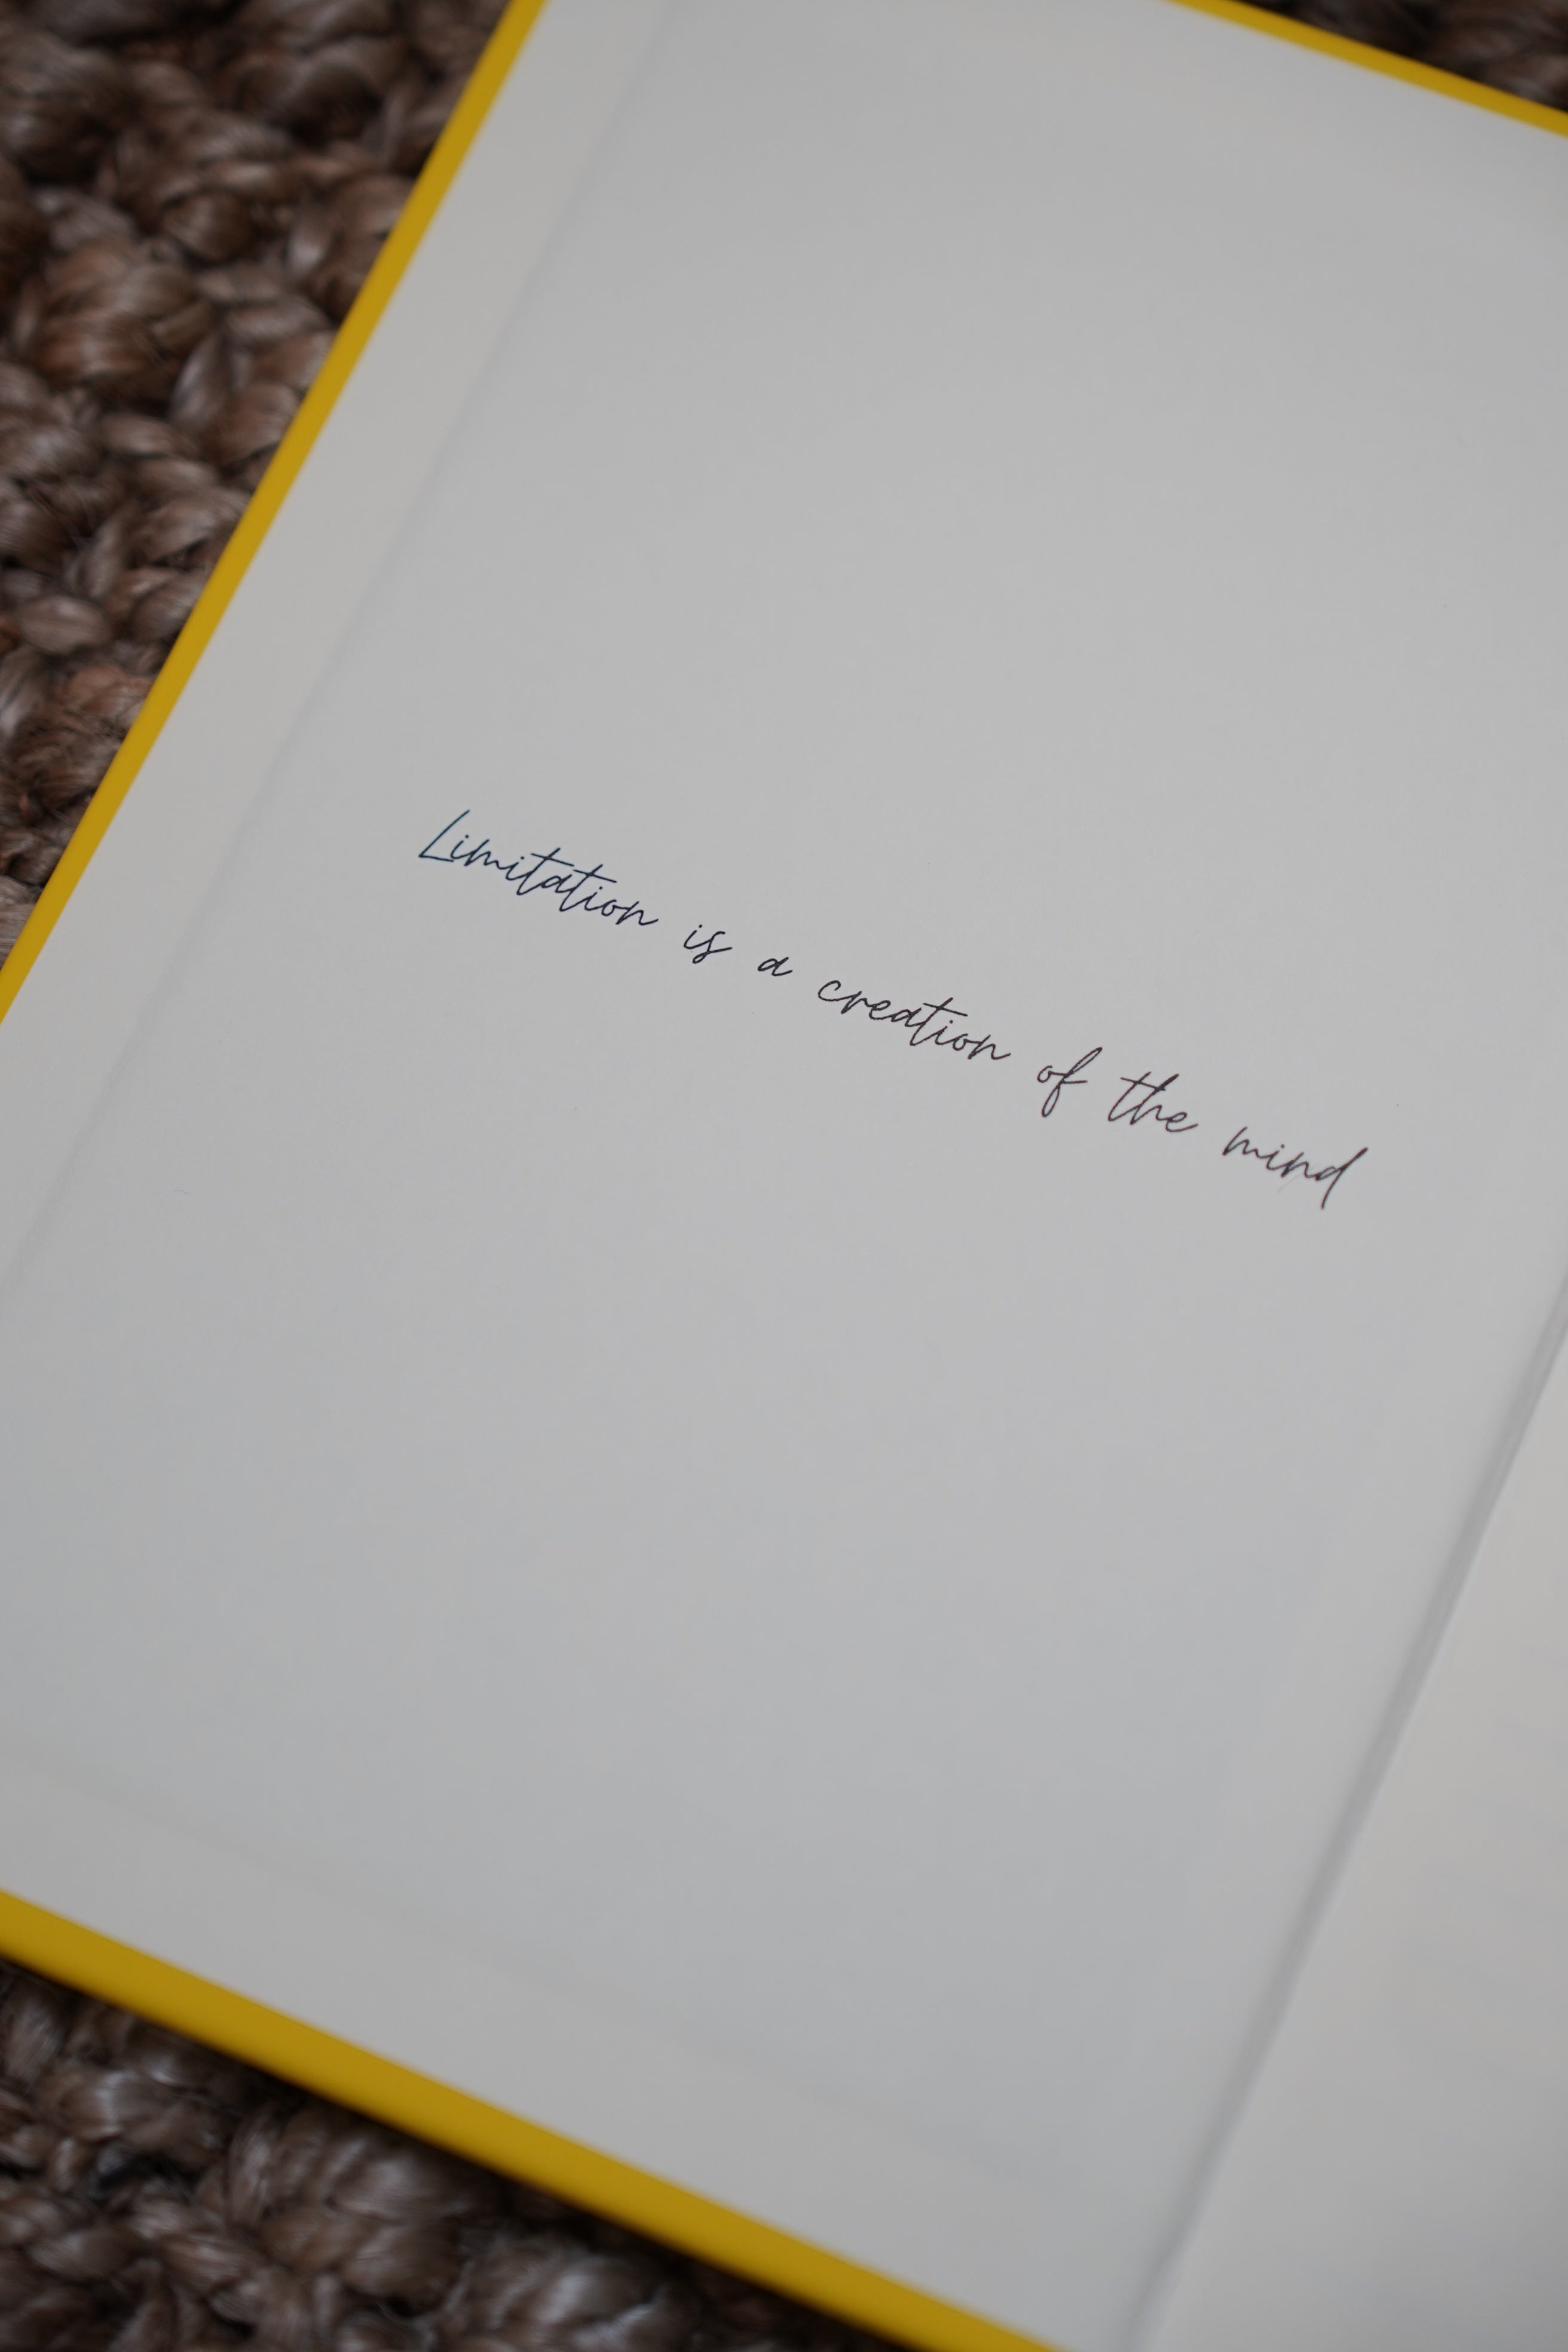 Limitation is a creation of the mind